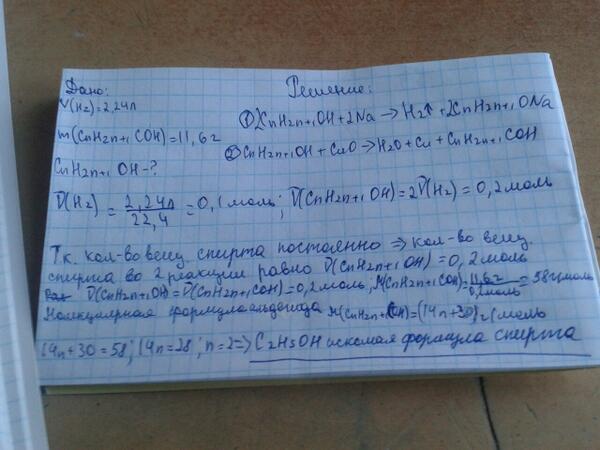 Дано:
Решение:
V(H₂)=2,24л
m(CnH2n+1 COH)=11,6г
CnH2n+1 OH-?
① 2CnH2n+1OH+2Na→H₂↑+2CnH2n+1ONa
② CnH2n+1OH+CuO→H₂O+Cu+CnH2n+1COH
ν(H₂)=2,24л/22,4=0,1моль; ν(CnH2n+1 OH)=2ν(H₂)=0,2моль
Т.к. кол-во вещ. спирта постоянно ⇒ кол-во вещ.
спирта во 2 реакции равно ν(CnH2n+1 OH)=0,2моль
ν(CnH2n+1OH)=ν(CnH2n+1COH)=0,2моль; M(CnH2n+1COH)=11,6г/0,2моль=58г/моль
формула альдегида M(CnH2n+1COH)=(14n+30)г/моль
14n+30=58; 14n=28; n=2⇒ C₂H₅OH искомая формула спирта